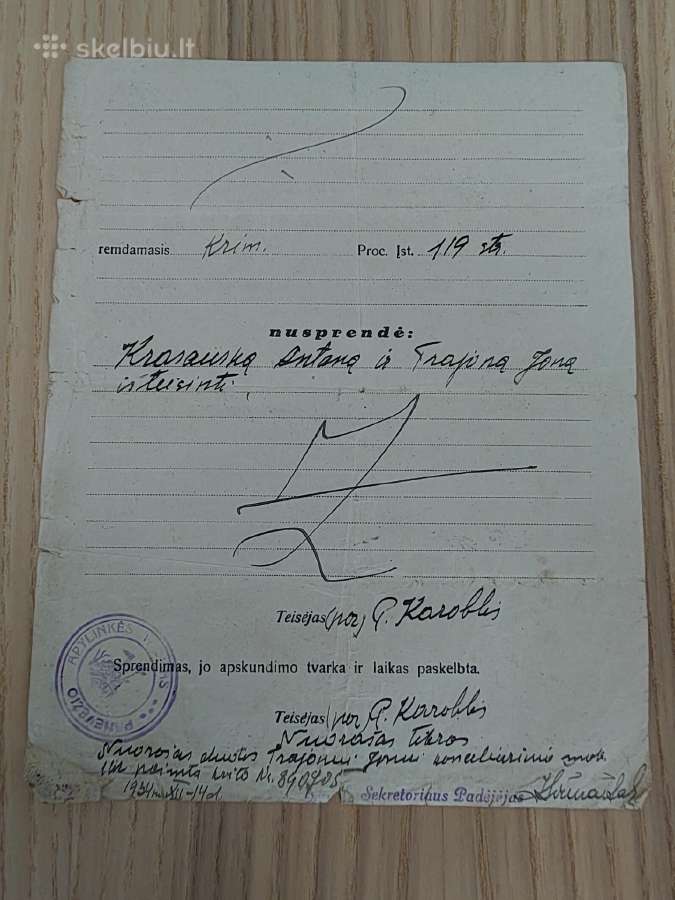 skelbiu.lt
remdamasis Krim. Proc. Įst. 119 str.
nusprendė:
Krasauską Antaną ir Trajoną Joną
išteisinti.
Teisėjas (par.) P. Karoblis
APYLINKĖS PANEVĖŽIO
Sprendimas, jo apskundimo tvarka ir laikas paskelbta.
Teisėjas (par.) P. Karoblis
Nuorašas tikras
Nuorašas duotas Trajonui Jonui kanceliarinio mok.
Nr. 890705
Sekretoriaus Padėjėjas
1934 m. XII-14 d.